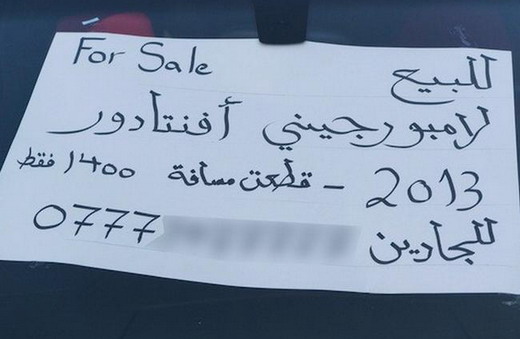 For Sale للبيع
لامبورجيني أفنتادور
2013 - قطعت مسافة 1400 فقط
للجادين 0777